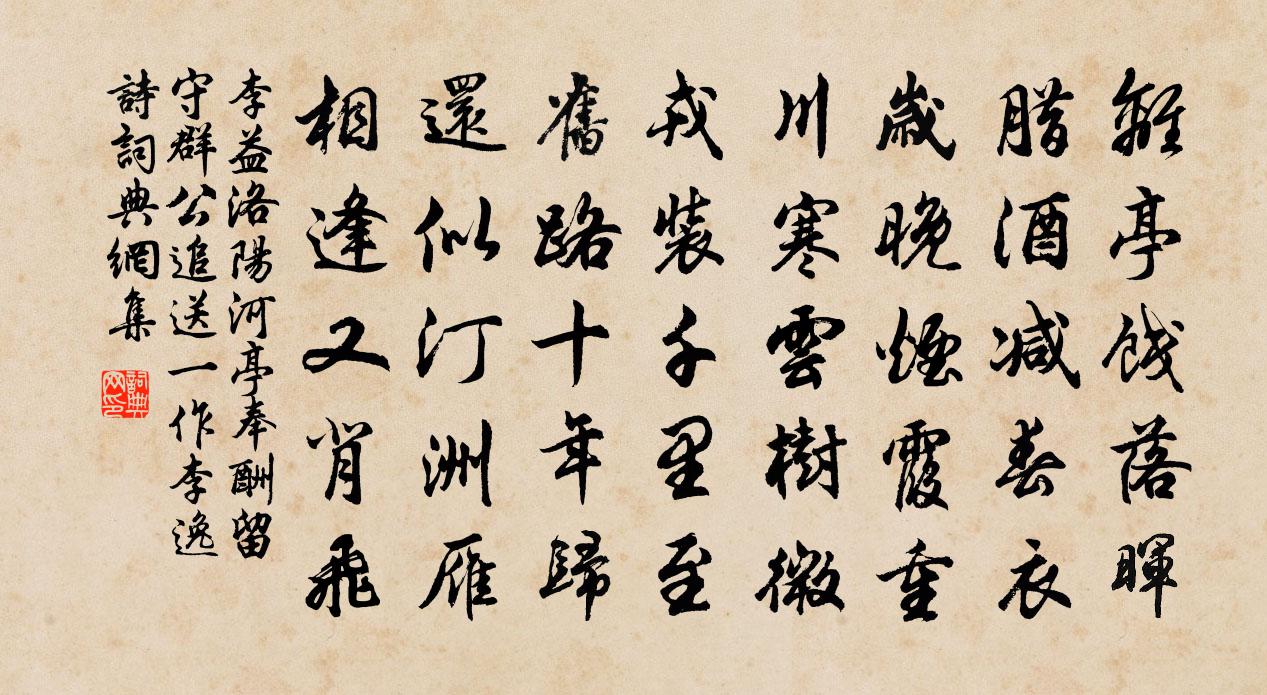 離亭餞落暉
腊酒減春衣
歲晚煙霞重
川寒雲樹微
戎裝千里至
舊路十年歸
還似汀洲雁
相逢又背飛
李益洛陽河亭奉酬留
守群公追送一作李逸
詩詞典網集
詞典
网印